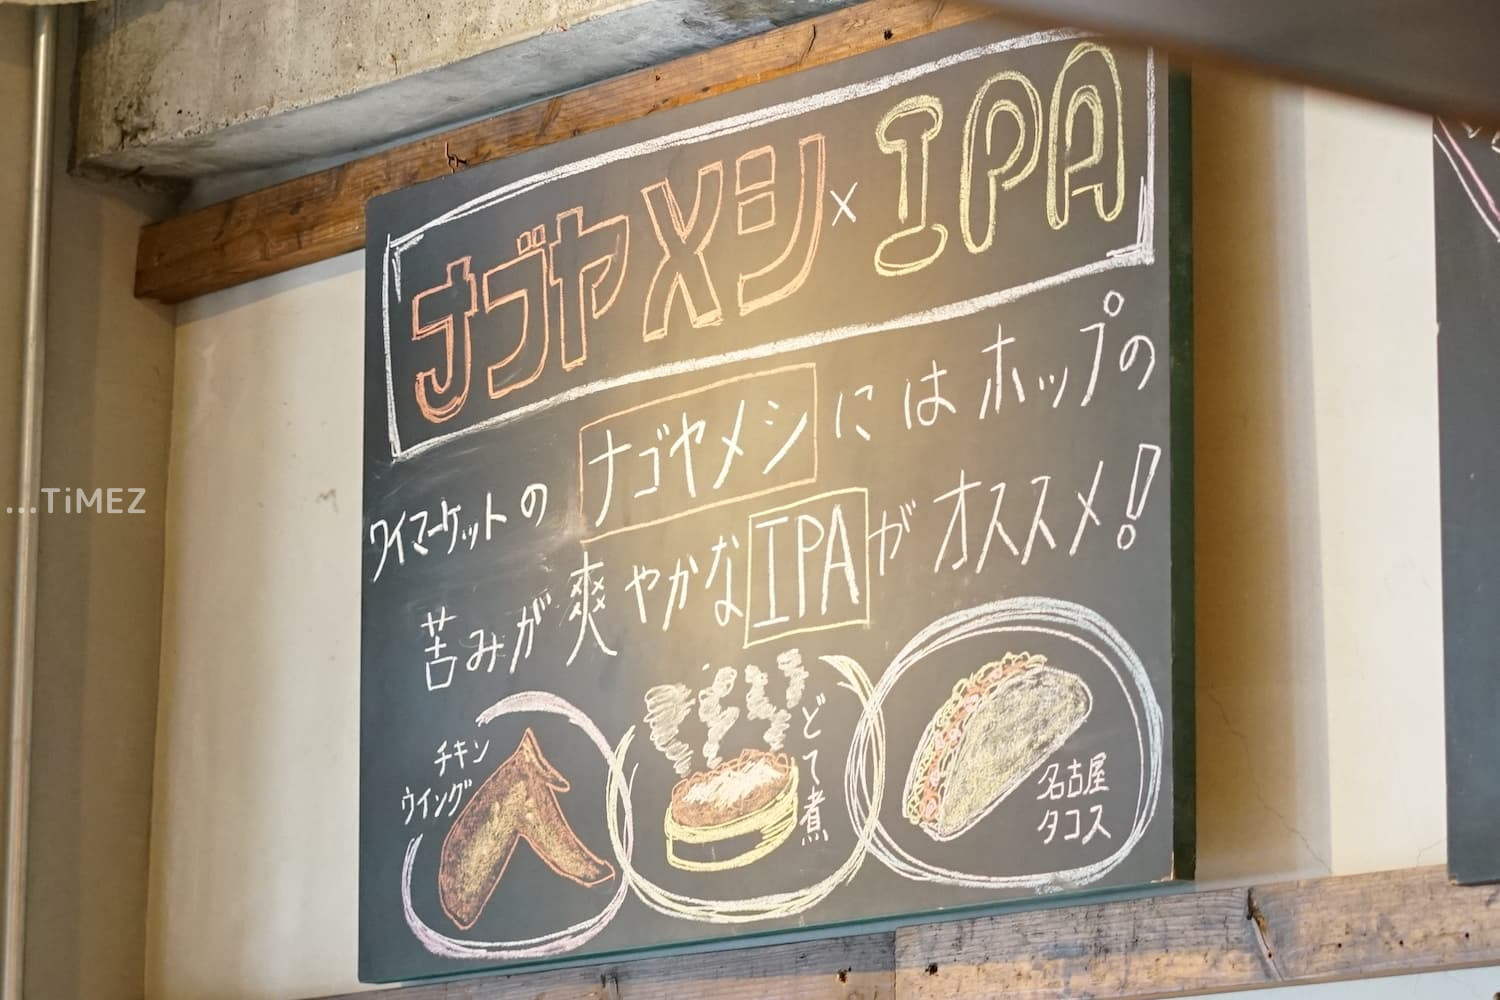 ナゴヤメシ×IPA
ワイマーケットの ナゴヤメシ には ホップの
苦みが爽やかな IPA が オススメ!
チキン
ウイング
どて煮
名古屋
タコス
...TiMEZ